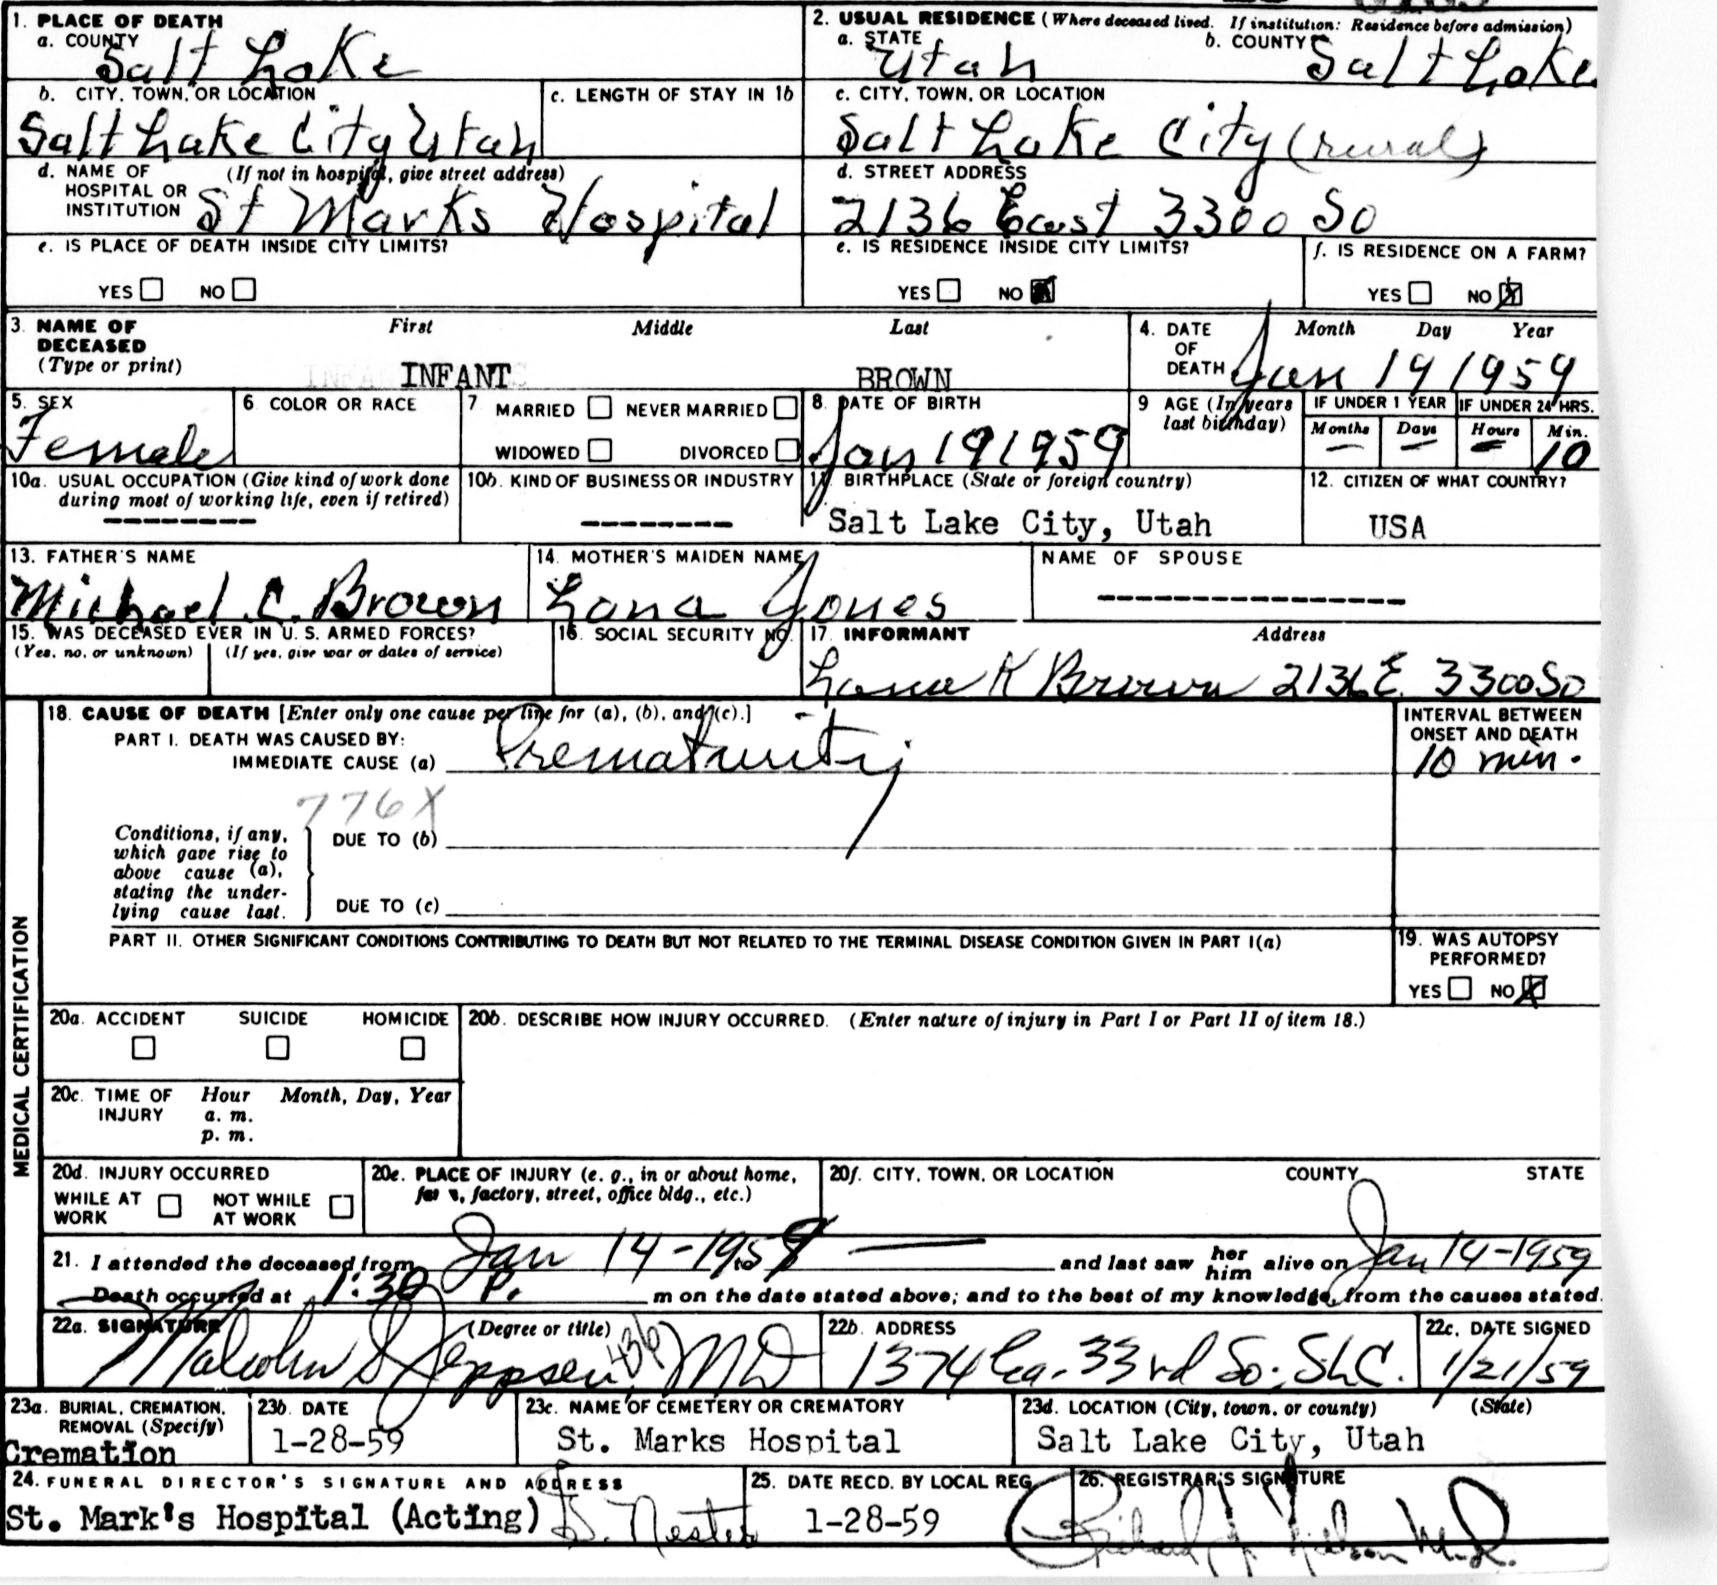 1. PLACE OF DEATH
a. COUNTY
Salt Lake
2. USUAL RESIDENCE (Where deceased lived. If institution: Residence before admission)
a. STATE
Utah
b. COUNTY
Salt Lake
b. CITY, TOWN, OR LOCATION
Salt Lake City Utah
c. LENGTH OF STAY IN 1b
c. CITY, TOWN, OR LOCATION
Salt Lake City (rural)
d. NAME OF HOSPITAL OR INSTITUTION
(If not in hospital, give street address)
St Marks Hospital
d. STREET ADDRESS
2136 East 3300 So
e. IS PLACE OF DEATH INSIDE CITY LIMITS?
YES NO
e. IS RESIDENCE INSIDE CITY LIMITS?
YES NO
f. IS RESIDENCE ON A FARM?
YES NO X
3. NAME OF DECEASED
(Type or print)
First Middle Last
INFANT BROWN
4. DATE OF DEATH
Month Day Year
Jan 19 1959
5. SEX
Female
6 COLOR OR RACE
7 MARRIED NEVER MARRIED
WIDOWED DIVORCED
8. DATE OF BIRTH
Jan 19 1959
9 AGE (In years last birthday)
IF UNDER 1 YEAR IF UNDER 24 HRS.
Months Days Hours Min.
— — — 10
10a. USUAL OCCUPATION (Give kind of work done during most of working life, even if retired)
---------
10b. KIND OF BUSINESS OR INDUSTRY
---------
11. BIRTHPLACE (State or foreign country)
Salt Lake City, Utah
12. CITIZEN OF WHAT COUNTRY?
USA
13. FATHER'S NAME
Michael C. Brown
14. MOTHER'S MAIDEN NAME
Lana Jones
NAME OF SPOUSE
----------------
15. WAS DECEASED EVER IN U. S. ARMED FORCES?
(Yes, no, or unknown) (If yes, give war or dates of service)
16. SOCIAL SECURITY NO.
17. INFORMANT Address
Lana K Brown 2136 E. 3300 So
MEDICAL CERTIFICATION
18. CAUSE OF DEATH [Enter only one cause per line for (a), (b), and (c).]
PART I. DEATH WAS CAUSED BY:
IMMEDIATE CAUSE (a) Prematurity
INTERVAL BETWEEN ONSET AND DEATH
10 min.
776X
Conditions, if any, which gave rise to above cause (a), stating the underlying cause last.
DUE TO (b)
DUE TO (c)
PART II. OTHER SIGNIFICANT CONDITIONS CONTRIBUTING TO DEATH BUT NOT RELATED TO THE TERMINAL DISEASE CONDITION GIVEN IN PART I(a)
19. WAS AUTOPSY PERFORMED?
YES NO X
20a. ACCIDENT SUICIDE HOMICIDE
20b. DESCRIBE HOW INJURY OCCURRED. (Enter nature of injury in Part I or Part II of item 18.)
20c. TIME OF INJURY
Hour Month, Day, Year
a. m.
p. m.
20d. INJURY OCCURRED
WHILE AT WORK NOT WHILE AT WORK
20e. PLACE OF INJURY (e. g., in or about home, farm, factory, street, office bldg., etc.)
20f. CITY, TOWN, OR LOCATION COUNTY STATE
21. I attended the deceased from Jan 14-1959 — and last saw her him alive on Jan 14-1959
Death occurred at 1:30 P. m on the date stated above; and to the best of my knowledge, from the causes stated.
22a. SIGNATURE (Degree or title)
Malcolm S Jeppsen MD
436
22b. ADDRESS
1374 Ea. 33rd So. SLC.
22c. DATE SIGNED
1/21/59
23a. BURIAL, CREMATION, REMOVAL (Specify)
Cremation
23b. DATE
1-28-59
23c. NAME OF CEMETERY OR CREMATORY
St. Marks Hospital
23d. LOCATION (City, town, or county) (State)
Salt Lake City, Utah
24. FUNERAL DIRECTOR'S SIGNATURE AND ADDRESS
St. Mark's Hospital (Acting)
25. DATE RECD. BY LOCAL REG.
1-28-59
26. REGISTRAR'S SIGNATURE
Richard